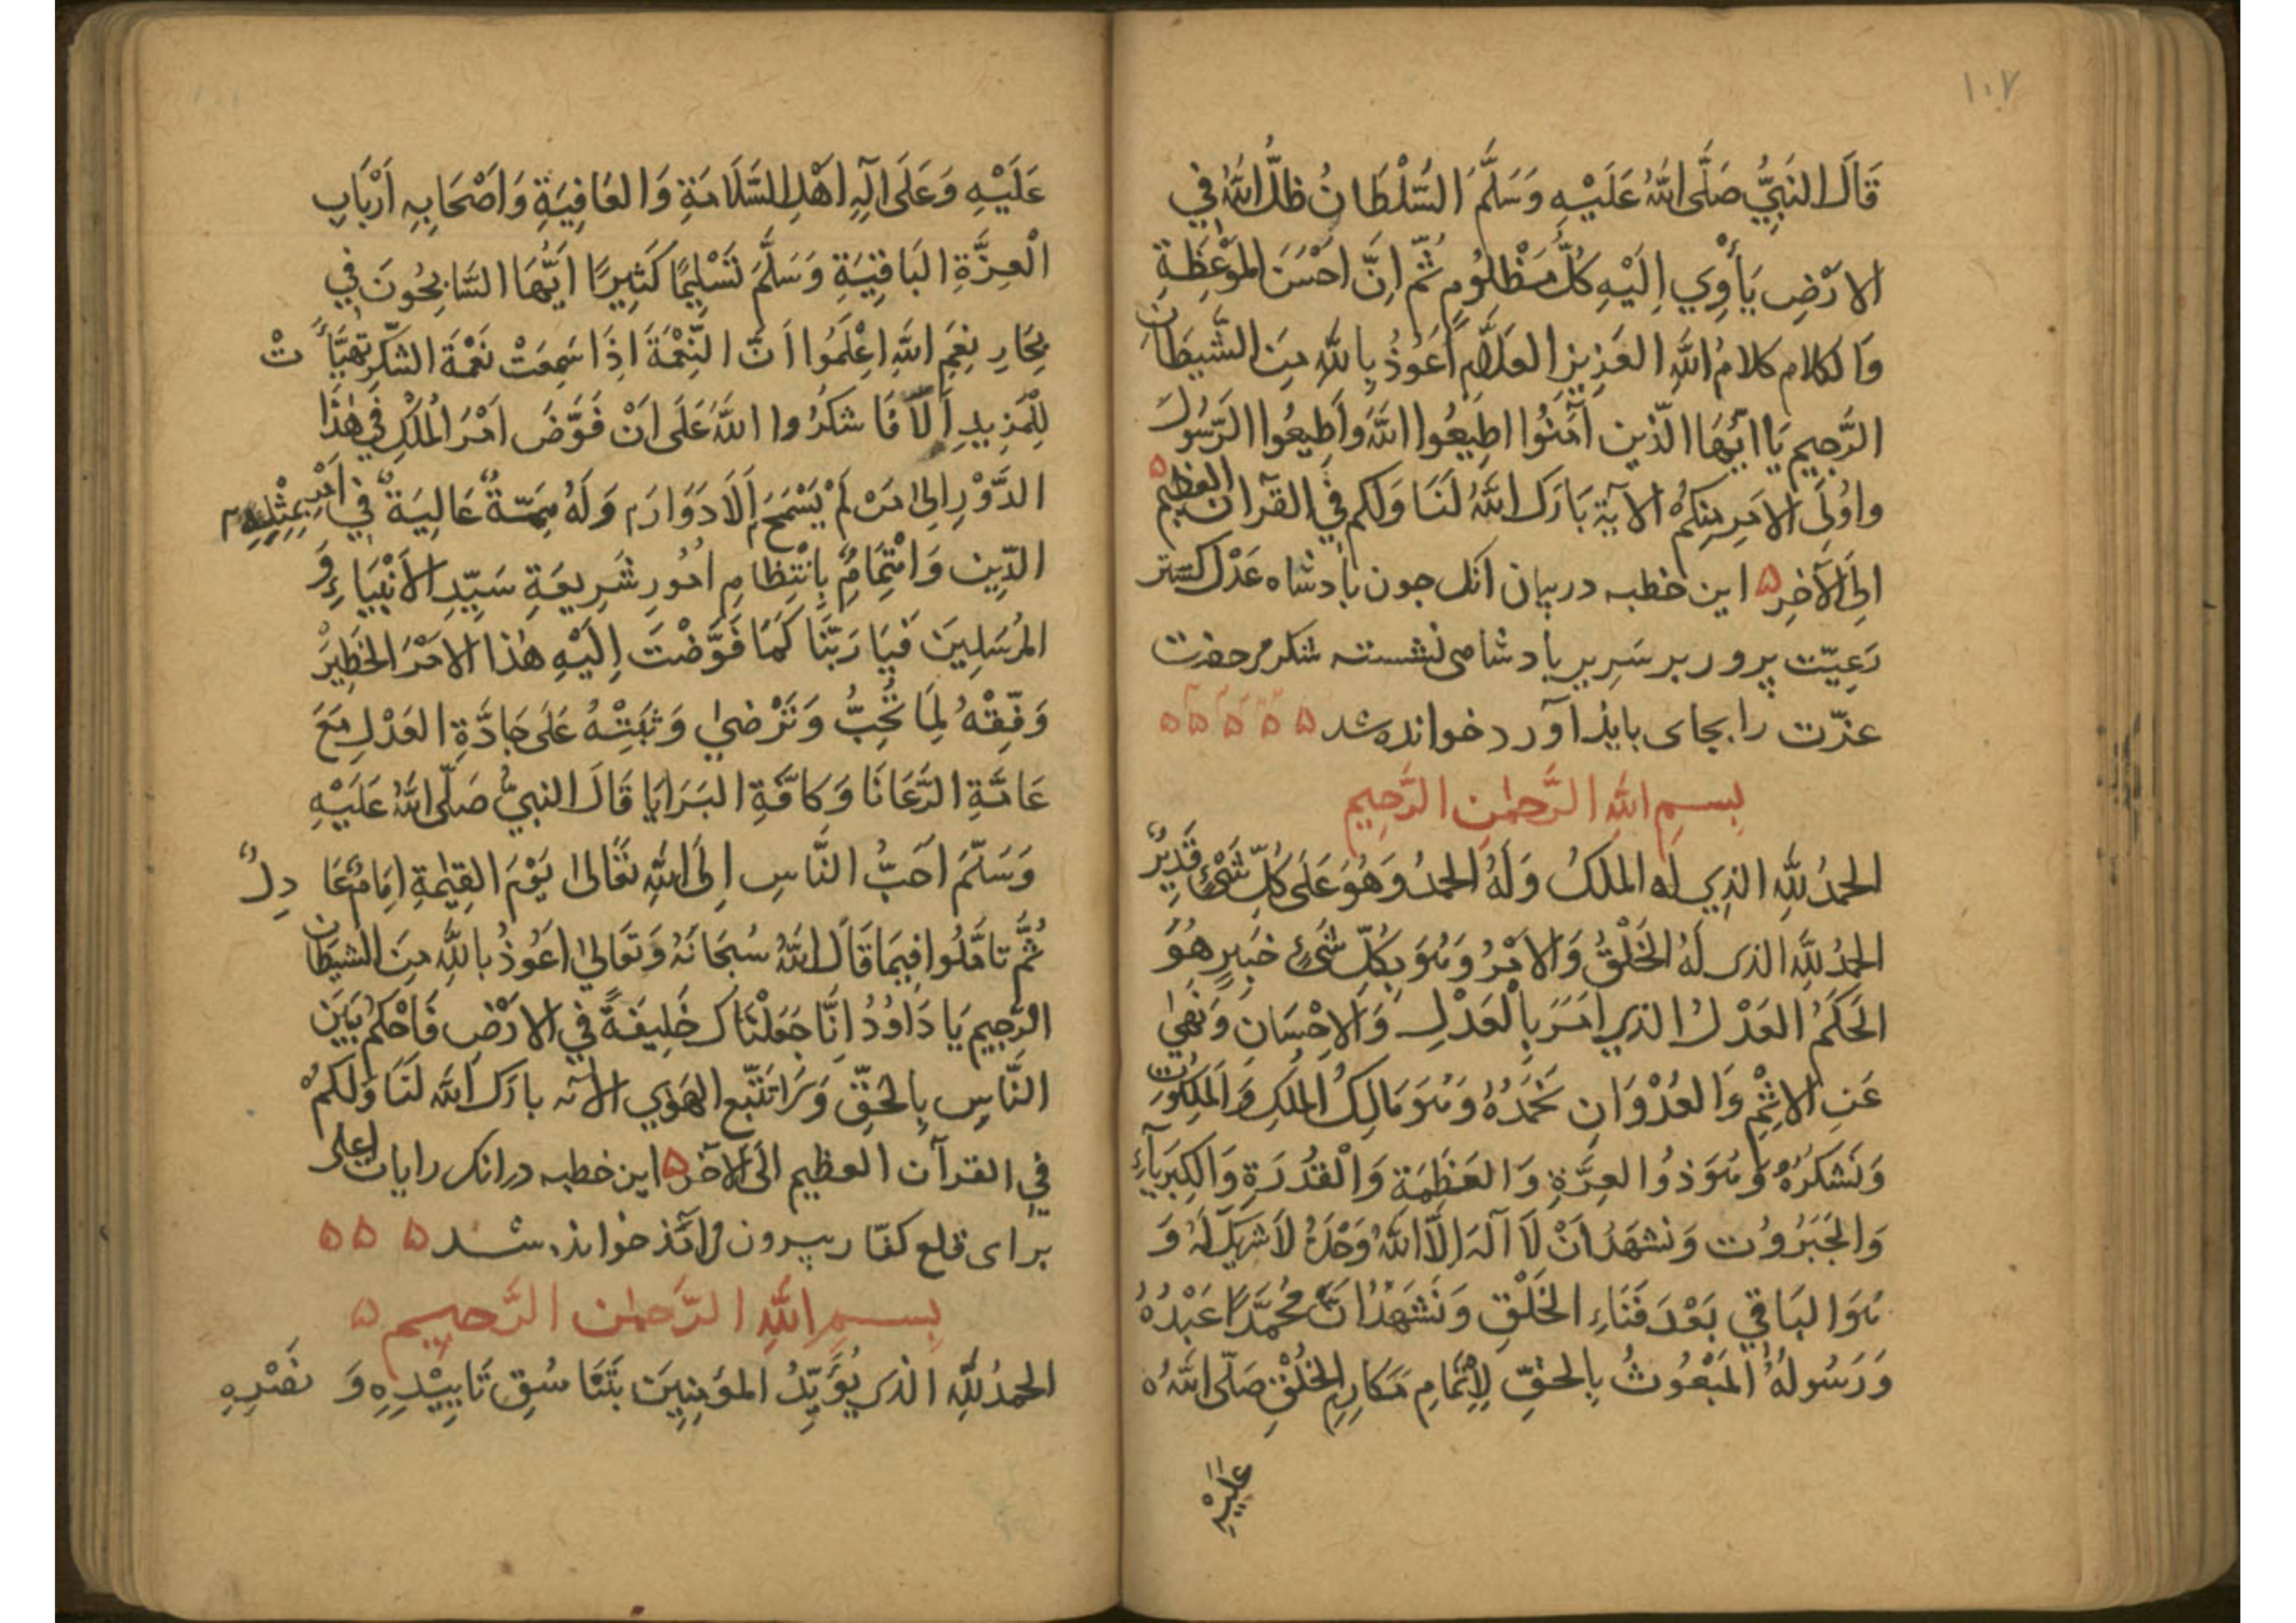 ١٠٧
قَالَ النَّبِيُّ صَلَّى اللّٰهُ عَلَيْهِ وَسَلَّمَ السُّلْطَانُ ظِلُّ اللّٰهِ فِي
الارْضِ يَأْوِي اِلَيْهِ كُلُّ مَظْلُومٍ ثُمَّ اِنَّ اَحْسَنَ المَوْعِظَةِ
وَالكلامِ كلامُ اللّٰهِ العَزِيزِ العَلَّامِ اَعُوذُ بِاللّٰهِ مِنَ الشَّيطَانِ
الرَّجِيمِ يَا اَيُّهَا الَّذِينَ آمَنُوا اطِيعُوا اللّٰهَ وَاَطِيعُوا الرَّسُولَ
واُولِى الامْرِ مِنكُمْ الآيَة بَارَكَ اللّٰهُ لَنَا وَلَكم فِي القرآن العظيم ۵
اِلَى الآخِر ۵ این خطبه در بیان آنک جون بادشاه عَدْل کستر
رَعِیّت پرور بر سَرِیر بادشاهی نشسته شکر مر حضرت
عزّت را بجای بایذ آورد خوانده شد ۵ ۵ ۵ ۵ ۵
بِسمِ اللّٰهِ الرَّحمٰنِ الرَّحِيمِ
الحمدُ لِلّٰهِ الذِي لَه الملكُ وَلَهُ الحمدُ وَهُوَ عَلَى كُلِّ شَيْءٍ قَدِيْرٌ
الحمدُ لِلّٰهِ الذى لَهُ الخَلْقُ وَالامْرُ وَهُوَ بِكُلِّ شَيْءٍ خَبِيرٍ هُوَ
الحَكَمُ العَدْلُ الذِي اَمَرَ بِالْعَدْلِ وَالاِحْسَانِ وَنَهٰى
عَنِ الاِثْمِ وَالعُدْوَانِ نَحْمَدُهُ وَهُوَ مَالِكُ المُلْكِ وَالمَلَكُوتِ
وَنَشْكُرُهُ وَهُوَ ذُو العِزَّةِ وَالعَظَمَةِ وَالْقُدْرَةِ وَالكِبْرِيَآءِ
وَالجَبَرُوتِ وَنَشهَدُ اَنْ لَا اِلَهَ اِلَّا اللّٰهُ وَحْدَهُ لَا شَرِيكَ لَهُ وَ
هُوَ البَاقِي بَعْدَ فَنَاءِ الخَلْقِ وَنَشْهَدُ اَنَّ مُحَمَّدًا عَبْدُهُ
وَرَسُولُهُ المَبْعُوثُ بِالحَقِّ لِاِتْمَامِ مَكَارِمِ الخُلْقِ صَلَّى اللّٰهُ
عَلَيْهِ
عَلَيْهِ وَعَلَى آلِهِ اَهْلِ السَّلَامَةِ وَالعَافِيَةِ وَاَصْحَابِهِ اَرْبَابِ
الْعِزَّةِ البَاقِيَةِ وَسَلَّمَ تَسْلِيمًا كَثِيرًا اَيُّهَا السَّابِحُونَ فِي
بِحَارِ نِعَمِ اللّٰهِ اِعْلَمُوا اَنَّ النِّعْمَةَ اِذَا سَمِعَتْ نَغْمَةَ الشُّكْرِ تَهَيَّأَتْ
لِلْمَزِيدِ اَلَا فَاشكُرُوا اللّٰهَ عَلَى اَنْ فَوَّضَ اَمْرَ المُلْكِ فِي هٰذَا
الدَّوْرِ اِلى مَنْ لَمْ يَسْمَحِ الَادَوَارُ وَلَهُ هِمَّةٌ عَالِيَةٌ فِي اَمْرِ بِمِثْلِهِ
الدِّينِ وَاهْتِمَامٌ بِانْتِظَامِ اُمُورِ شَرِيعَةِ سَيِّدِ الاَنْبِيَاءِ وَ
المُرْسَلِينَ فَيَا رَبَّنَا كَمَا فَوَّضْتَ اِلَيْهِ هٰذَا الامْرَ الخَطِيْرَ
وَفِّقْهُ لِمَا تُحِبُّ وَتَرْضٰي وَثَبِّتْهُ عَلَى جَادَّةِ العَدْلِ مَعَ
عَامَّةِ الرَّعَايَا وَكَافَّةِ البَرَايَا قَالَ النبيُّ صَلَّى اللّٰهُ عَلَيْهِ
وَسَلَّمَ اَحَبُّ النَّاسِ اِلَى اللّٰهِ تَعَالىٰ يَوْمَ القِيٰمَةِ اِمَامٌ عَادِلٌ
ثُمَّ تَامَّلُوا فِيمَا قَالَ اللّٰهُ سُبحَانَهُ وَتَعَالىٰ اَعُوذُ بِاللّٰهِ مِنَ الشيطَانِ
الرَّجِيمِ يَا دَاوُدُ اِنَّا جَعَلْنَاكَ خَلِيفَةً فِي الارْضِ فَاحْكُمْ بَيْنَ
النَّاسِ بِالحَقِّ وَلَا تَتَّبِعِ الهَوٰي الآيه بارَكَ اللّٰه لَنَا وَلَكُمْ
فِي القرآن العظيم الَى الآخر ۵ این خطبه در انکی رایات اعلی
برای قلع کفّار بیرون خوانده شد ۵ ۵ ۵
بِسمِ اللّٰهِ الرَّحمٰنِ الرَّحِيمِ ۵
الحمدُ لِلّٰهِ الذى يُؤَيِّدُ المؤمِنِينَ بِتَنَاسُقِ تَايِيْدِهِ وَ نَصْرِهِ